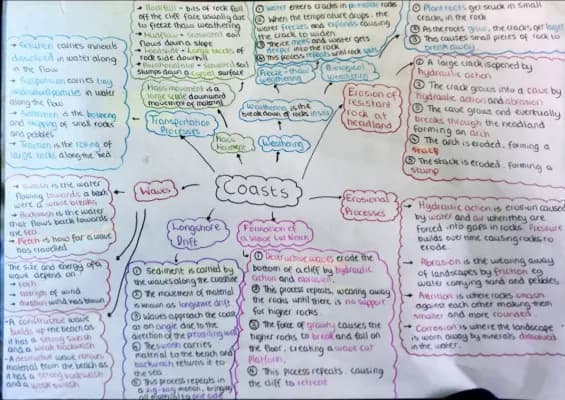 Coasts
Rockfall - bits of rock fall
off the cliff face usually due
to freeze thaw weathering
Mudflow - saturated soil
flows down a slope
Landslide - large blocks of
rock slide downhill
saturated soil
slumps down a curved surface
Mass movement is a
large scale downward
movement of material
Mass
Movement
water enters cracks in
② When the temperature drops, the
water freezes and expands causing
the crack to widen
③ The ice melts and water gets
deeper into the rock
④ This process repeats until rock
Freeze-thaw
weathering
Biological
weathering
Weathering is the
breakdown of rocks
Weathering
① Plant roots get stuck in small
cracks in the rock
② As the roots grow, the cracks get larger
③ This causes small pieces of rock to
break away
Erosion of
resistant
rock at
headland
① A large crack is opened by
hydraulic action
② The crack grows into a cave by
hydraulic action and abrasion
③ The cave grows and eventually
breaks through the headland
forming an arch
④ The arch is eroded, forming a
stack
⑤ The stack is eroded, forming a
stump
→ Solution carries minerals
dissolved in water along
the flow
→ Suspension carries tiny
particles in water
along the flow
→ Saltation is the bouncing
and hopping of small rocks
and pebbles
→ Traction is the rolling of
large rocks along the bed
Transportation
Processes
Waves
→ Swash is the water
flowing towards a beach
were a wave breaks
→ Backwash is the water
that flows back towards
the sea
→ Fetch is how far a wave
has travelled
The size and energy of a
wave depend on
→ fetch
→ strength of wind
→ duration wind has blown
→ A constructive wave
builds up the beach as
it has a strong swash
and a weak backwash
A destructive wave removes
material from the beach as
it has a strong backwash
and a weak swash
Longshore
Drift
① Sediment is carried by
the waves along the coastline
② The movement of material
is known as longshore drift
③ Waves approach the coast
at an angle due to the
direction of the prevailing wind
④ The swash carries
material to the beach and
backwash returns it to
the sea
⑤ This process repeats in
a zig-zag motion, bringing
material to one side
Formation of
a wave cut
① Destructive waves erode the
bottom of a cliff by hydraulic
action and abrasion.
② This process repeats, wearing away
the rocks until there is no support
for higher rocks.
③ The force of gravity causes the
higher rocks to break and fall on
the floor, creating a wave cut
platform
④ This process repeats, causing
the cliff to retreat
Erosional
Processes
→ Hydraulic action is erosion caused
by water and air when they are
forced into gaps in rocks. Pressure
builds over time causing rocks to
erode.
→ Abrasion is the wearing away
of landscapes by friction eg
water carrying sand and pebbles
→ Attrition is where rocks smash
against each other making them
smaller and more rounded
→ Corrosion is where the landscape
is worn away by minerals dissolved
in the water.